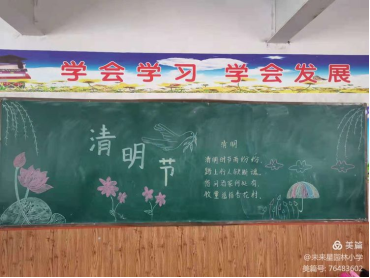 学会学习 学会发展
清明节
清明
清明时节雨纷纷,
路上行人欲断魂。
借问酒家何处有,
牧童遥指杏花村。
美篇
@未来星园林小学
美篇号:76483502